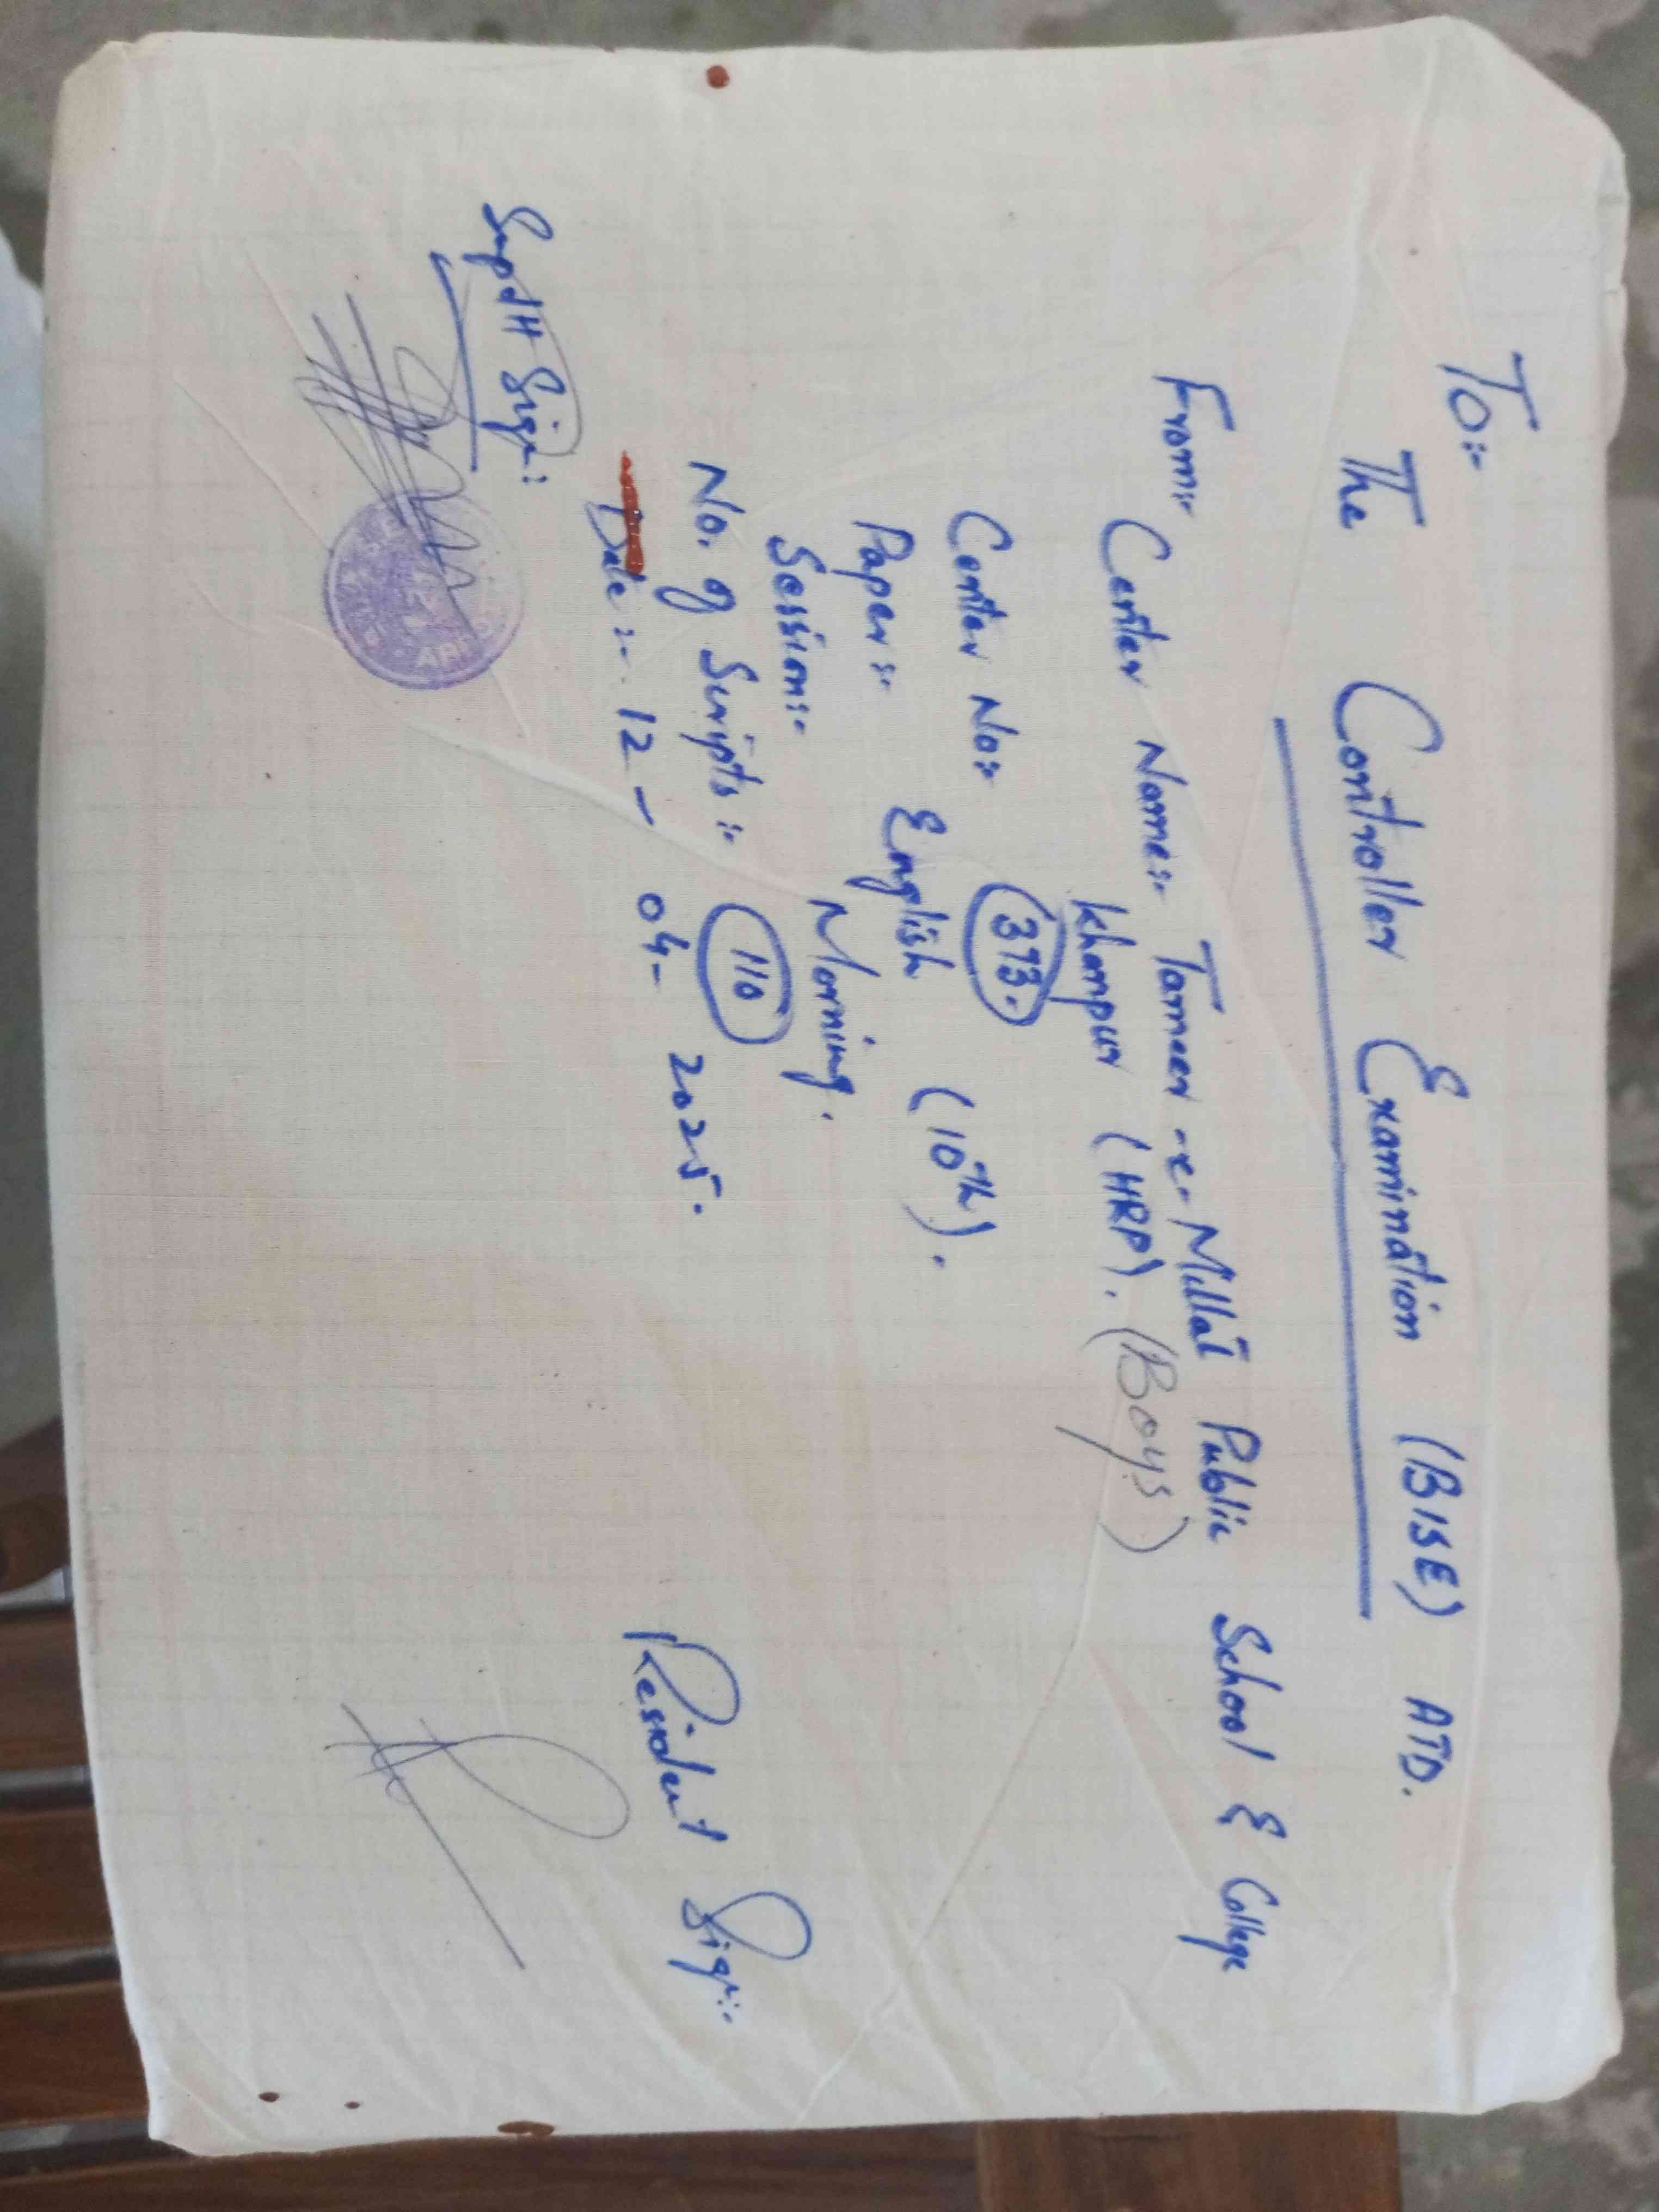 To:-
The Controller Examination (BISE) ATD.
From:- Center Name:- Tameer-e-Millat Public School & College
Khanpur (HRP). (Boys)
Center No:- 393.
Paper:- English (10th).
Session:- Morning.
No. of Scripts:- 110
Date:- 12-04-2025.
Supdtt Sign:
Resident Sign:-